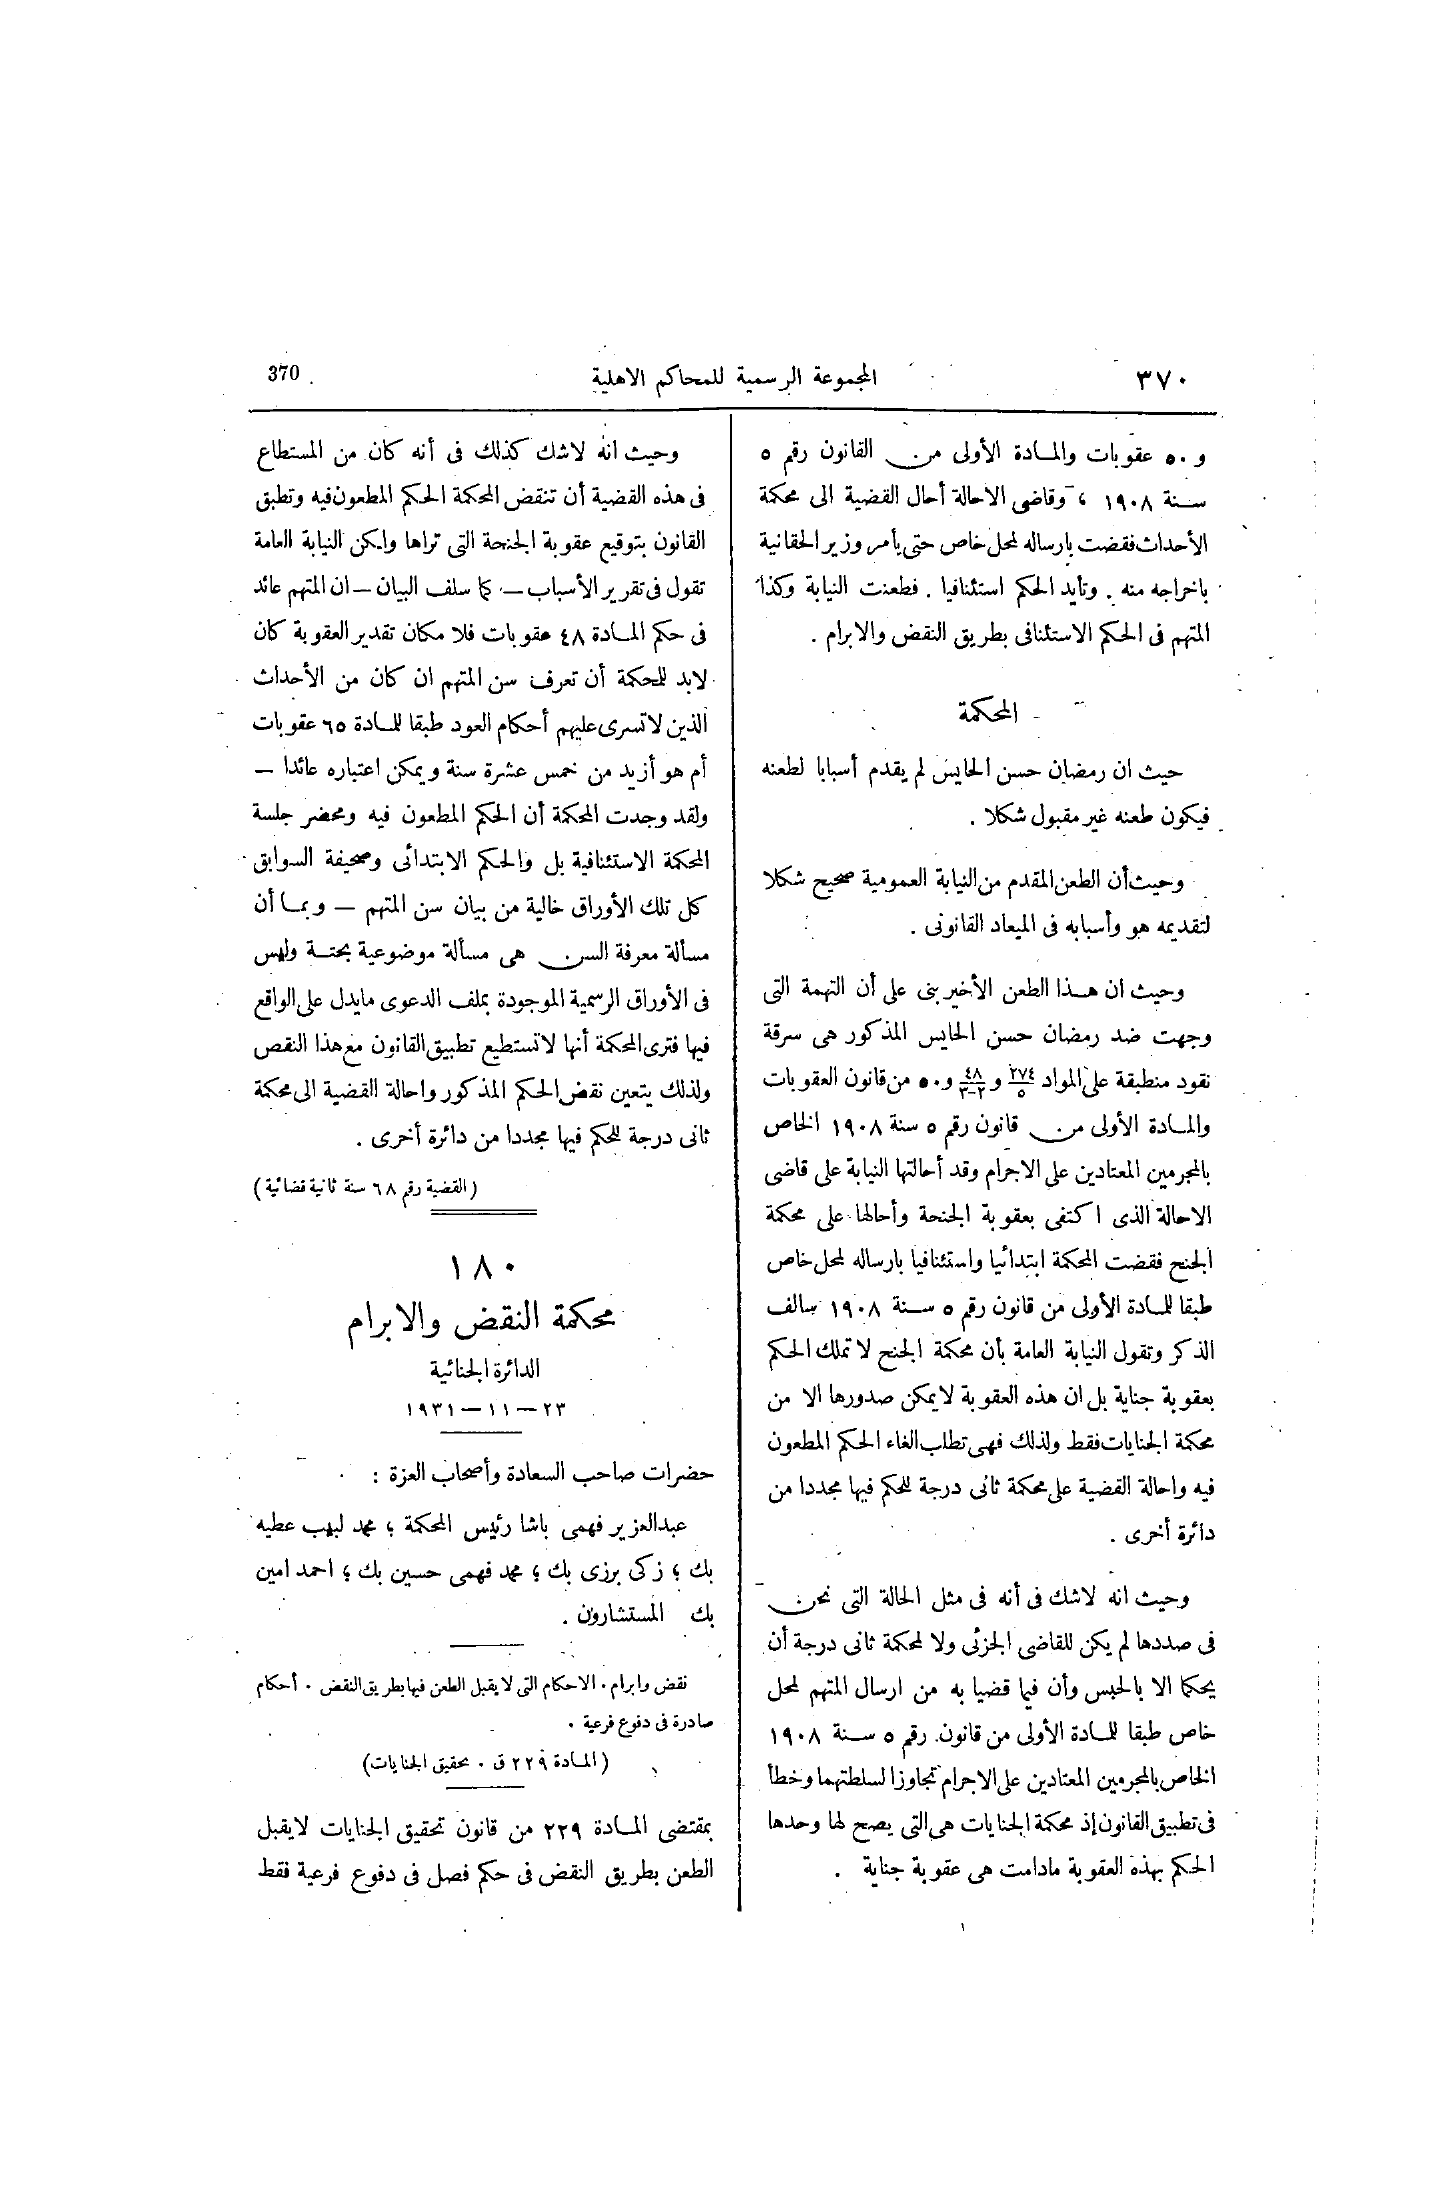 ٣٧٠
المجموعة الرسمية للمحاكم الاهلية
370
و٥٠ عقوبات والمادة الأولى من القانون رقم ٥
سنة ١٩٠٨ ، وقاضى الاحالة أحال القضية الى محكمة
الأحداث فقضت بارساله لمحل خاص حتى يأمر وزير الحقانية
باخراجه منه . وتأيد الحكم استئنافيا . فطعنت النيابة وكذا
المتهم فى الحكم الاستئنافى بطريق النقض والابرام .
المحكمة
حيث ان رمضان حسن الحايس لم يقدم أسبابا لطعنه
فيكون طعنه غير مقبول شكلا .
وحيث أن الطعن المقدم من النيابة العمومية صحيح شكلا
لتقديمه هو وأسبابه فى الميعاد القانونى .
وحيث ان هذا الطعن الأخير بنى على أن التهمة التى
وجهت ضد رمضان حسن الحايس المذكور هى سرقة
نقود منطبقة على المواد ٢٧٤/٥ و ٤٨/٢-٣ و٥٠ من قانون العقوبات
والمادة الأولى من قانون رقم ٥ سنة ١٩٠٨ الخاص
بالمجرمين المعتادين على الاجرام وقد أحالتها النيابة على قاضى
الاحالة الذى اكتفى بعقوبة الجنحة وأحالها على محكمة
الجنح فقضت المحكمة ابتدائيا واستئنافيا بارساله لمحل خاص
طبقا للمادة الأولى من قانون رقم ٥ سنة ١٩٠٨ سالف
الذكر وتقول النيابة العامة بأن محكمة الجنح لا تملك الحكم
بعقوبة جناية بل ان هذه العقوبة لا يمكن صدورها الا من
محكمة الجنايات فقط ولذلك فهى تطلب الغاء الحكم المطعون
فيه واحالة القضية على محكمة ثانى درجة للحكم فيها مجددا من
دائرة أخرى .
وحيث انه لاشك فى أنه فى مثل الحالة التى نحن
فى صددها لم يكن للقاضى الجزئى ولا لمحكمة ثانى درجة أن
يحكما الا بالحبس وأن فيما قضيا به من ارسال المتهم لمحل
خاص طبقا للمادة الأولى من قانون رقم ٥ سنة ١٩٠٨
الخاص بالمجرمين المعتادين على الاجرام تجاوزا لسلطتهما وخطأ
فى تطبيق القانون إذ محكمة الجنايات هى التى يصح لها وحدها
الحكم بهذه العقوبة مادامت هى عقوبة جناية .
وحيث انه لاشك كذلك فى أنه كان من المستطاع
فى هذه القضية أن تنقض المحكمة الحكم المطعون فيه وتطبق
القانون بتوقيع عقوبة الجنحة التى تراها ولكن النيابة العامة
تقول فى تقرير الأسباب — كما سلف البيان — ان المتهم عائد
فى حكم المادة ٤٨ عقوبات فلا مكان تقدير العقوبة كان
لابد للمحكمة أن تعرف سن المتهم ان كان من الأحداث
الذين لا تسرى عليهم أحكام العود طبقا للمادة ٦٥ عقوبات
أم هو أزيد من خمس عشرة سنة ويمكن اعتباره عائدا —
ولقد وجدت المحكمة أن الحكم المطعون فيه ومحضر جلسة
المحكمة الاستئنافية بل والحكم الابتدائى وصحيفة السوابق
كل تلك الأوراق خالية من بيان سن المتهم — وبما أن
مسألة معرفة السن هى مسألة موضوعية بحتة وليس
فى الأوراق الرسمية الموجودة بملف الدعوى مايدل على الواقع
فيها فترى المحكمة أنها لا تستطيع تطبيق القانون مع هذا النقص
ولذلك يتعين نقض الحكم المذكور واحالة القضية الى محكمة
ثانى درجة للحكم فيها مجددا من دائرة أخرى .
(القضية رقم ٦٨ سنة ثانية قضائية)
١٨٠
محكمة النقض والابرام
الدائرة الجنائية
٢٣ — ١١ — ١٩٣١
حضرات صاحب السعادة وأصحاب العزة :
عبدالعزيز فهمى باشا رئيس المحكمة ؛ محمد لبيب عطيه
بك ؛ زكى برزى بك ؛ محمد فهمى حسين بك ؛ احمد امين
بك المستشارون .
نقض وابرام . الاحكام التى لا يقبل الطعن فيها بطريق النقض . أحكام
صادرة فى دفوع فرعية .
(المادة ٢٢٩ ق . تحقيق الجنايات)
بمقتضى المادة ٢٢٩ من قانون تحقيق الجنايات لا يقبل
الطعن بطريق النقض فى حكم فصل فى دفوع فرعية فقط